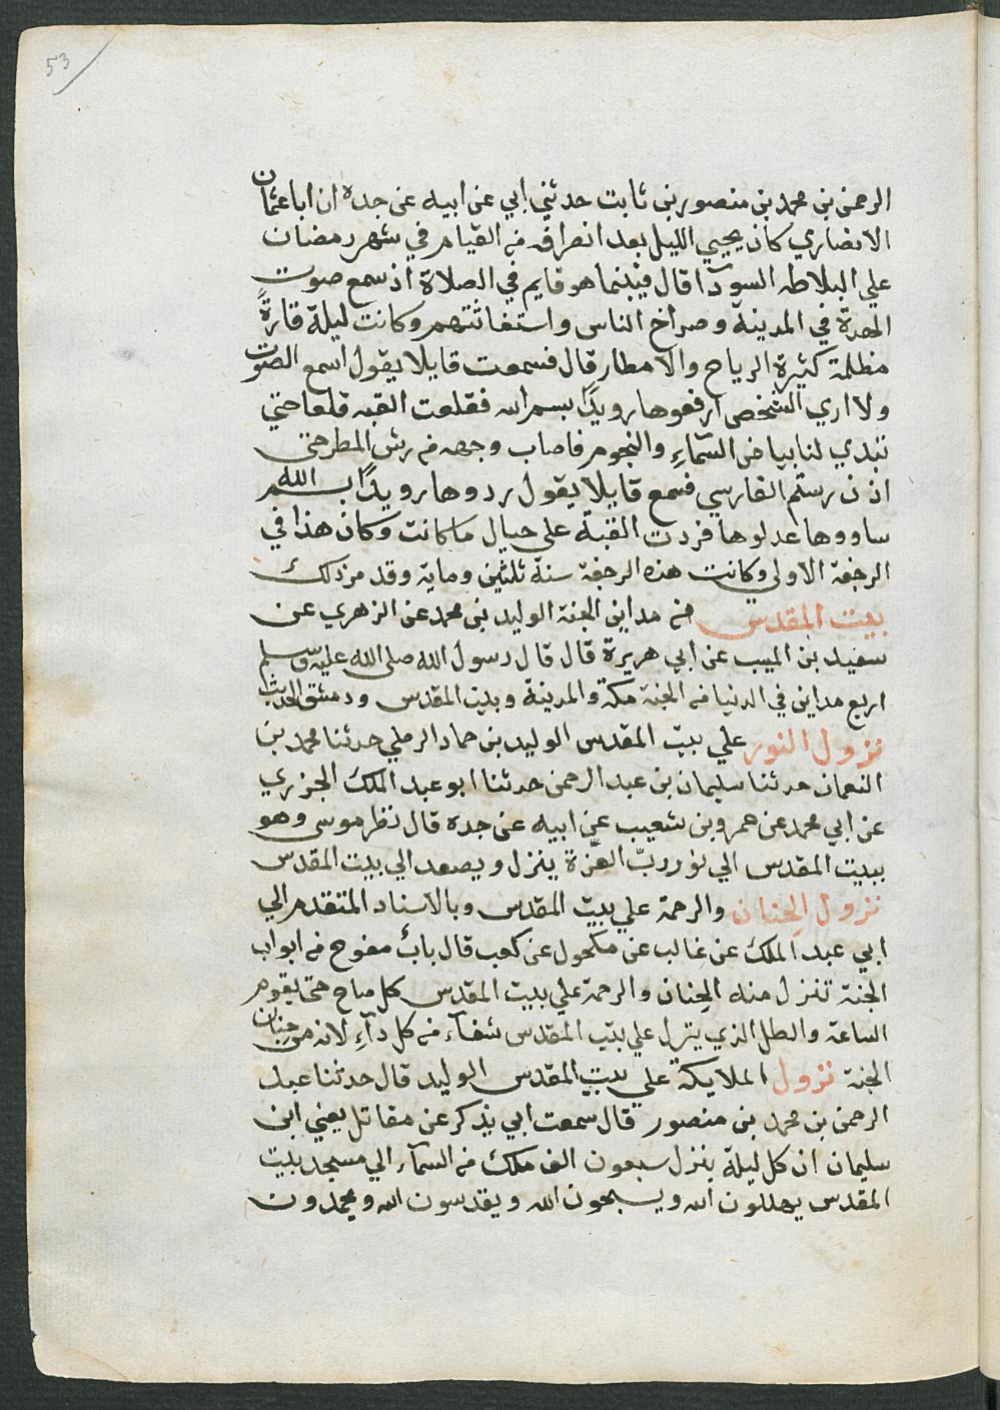 53
الرحمن بن محمد بن منصور بن ثابت حدثني ابي عن ابيه عن جده ان ابا عثمان
الانصاري كان يحيي الليل بعد انصرافه من القيام في شهر رمضان
علي البلاطه السودآ قال فبينما هو قايم في الصلاة اذ سمع صوت
الهدة في المدينة وصراخ الناس واستغاثتهم وكانت ليلة قارةً
مظلمة كثيرة الرياح والامطار قال فسمعت قايلا يقول اسمع الصوت
ولا اري الشخص ارفعوها رويدًا بسم الله فقلعت القبه قلعا حتي
تبدي لنا بياض السّماءِ والنجوم فاصاب وجهه من رش المطر حتي
اذن رستم الفارسي فسمع قايلا يقول ردوها رويدًا بسم الله
ساووها عدلوها فردت القبة علي حيال ما كانت وكان هذا في
الرجفة الاولي وكانت هذه الرجفة سنة ثلثين وماية وقد مر ذلك
بيت المقدس من مداين الجنة الوليد بن محمد عن الزهري عن
سعيد بن المسيب عن ابي هريرة قال قال رسول الله صلى الله عليه وسلم
اربع مداين في الدنيا من الجنة مكة والمدينة وبيت المقدس ودمشق الحديث
نزول النور علي بيت المقدس الوليد بن حماد الرملي حدثنا محمد بن
النعمان حدثنا سليمان بن عبد الرحمن حدثنا ابو عبد الملك الجزري
عن ابي محمد عن عمرو بن شعيب عن ابيه عن جده قال نظر موسى وهو
ببيت المقدس الي نور ربّ العزّة ينزل ويصعد الي بيت المقدس
نزول الحنان والرحمة علي بيت المقدس وبالاسناد المتقدم الي
ابي عبد الملك عن غالب عن مكحول عن كعب قال بابٌ مفتوح من ابواب
الجنة تنزل منه الحنان والرحمة علي بيت المقدس كل صباح حتي تقوم
الساعة والطل الذي ينزل علي بيت المقدس شفآء من كل دآءٍ لانه من جنان
الجنة نزول الملايكة علي بيت المقدس الوليد قال حدثنا عبد
الرحمن بن محمد بن منصور قال سمعت ابي يذكر عن مقاتل يعني ابن
سليمان ان كل ليلة ينزل سبعون الف ملك من السمآء الي مسجد بيت
المقدس يهللون الله ويسبحون الله ويقدسون الله ويحمدون